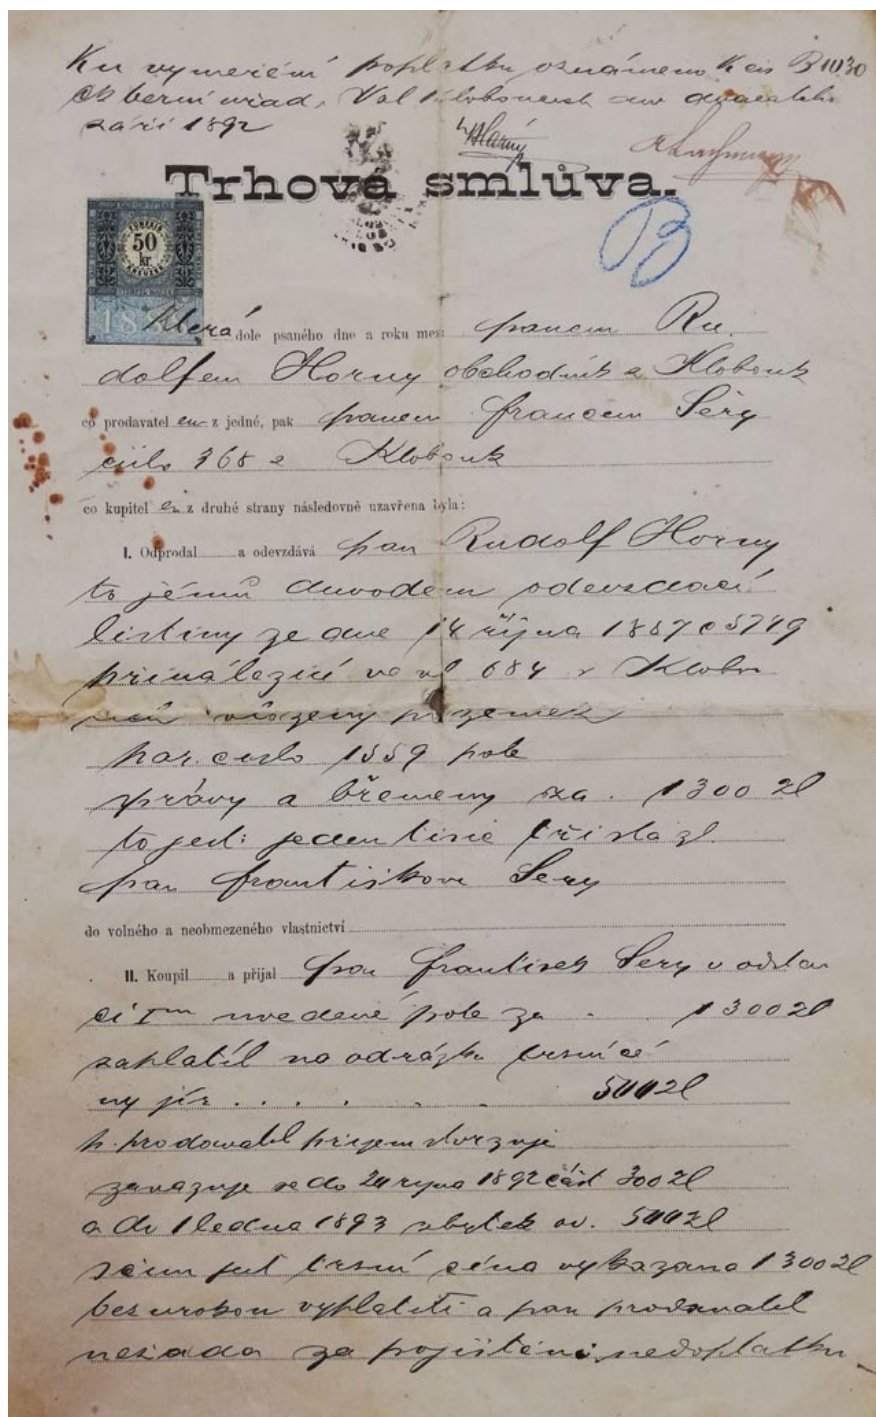 Ku vymerění poplatku oznámeno K čis B 1030
ck berní uřad, Val Kloboucích dne
září 1892
Trhová smlůva.
B
50
kr.
188
Která dole psaného dne a roku mezi panem Ru.
dolfem Horny obchodník z Klobouk
co prodavatel em z jedné, pak panem francem Šery
čislo 368 z Klobouk
co kupitel em z druhé strany následovně uzavřena byla:
I. Odprodal a odevzdává pan Rudolf Horny
to jémů duvodem odevzdací
listiny ze dne 14 října 1887 č 5749
přináležící ve vl 684 v Klobou
cích vložený pozemek
par. cislo 1559 pole
správy a břemeny za . 1300 zl
to jest: jeden tisic třista zl.
pan františkovi Sery
do volného a neobmezeného vlastnictví
II. Koupil a přijal pan františek Sery v odstav
ci I uvedené pole za . . 1300 zl
zaplatil na odrážku trsní cé
ny jiz . . . . . 500 zl
p. prodowatel přijem stvrzuje
zavazuje se do 20 ryjna 1892 část 300 zl
a do 1 ledna 1893 zbytek 500 zl
sčim jest trsní céna vykazana 1300 zl
bez urokou vyplatiti a pan prodavatel
nežada za pojištěni nedoplatku